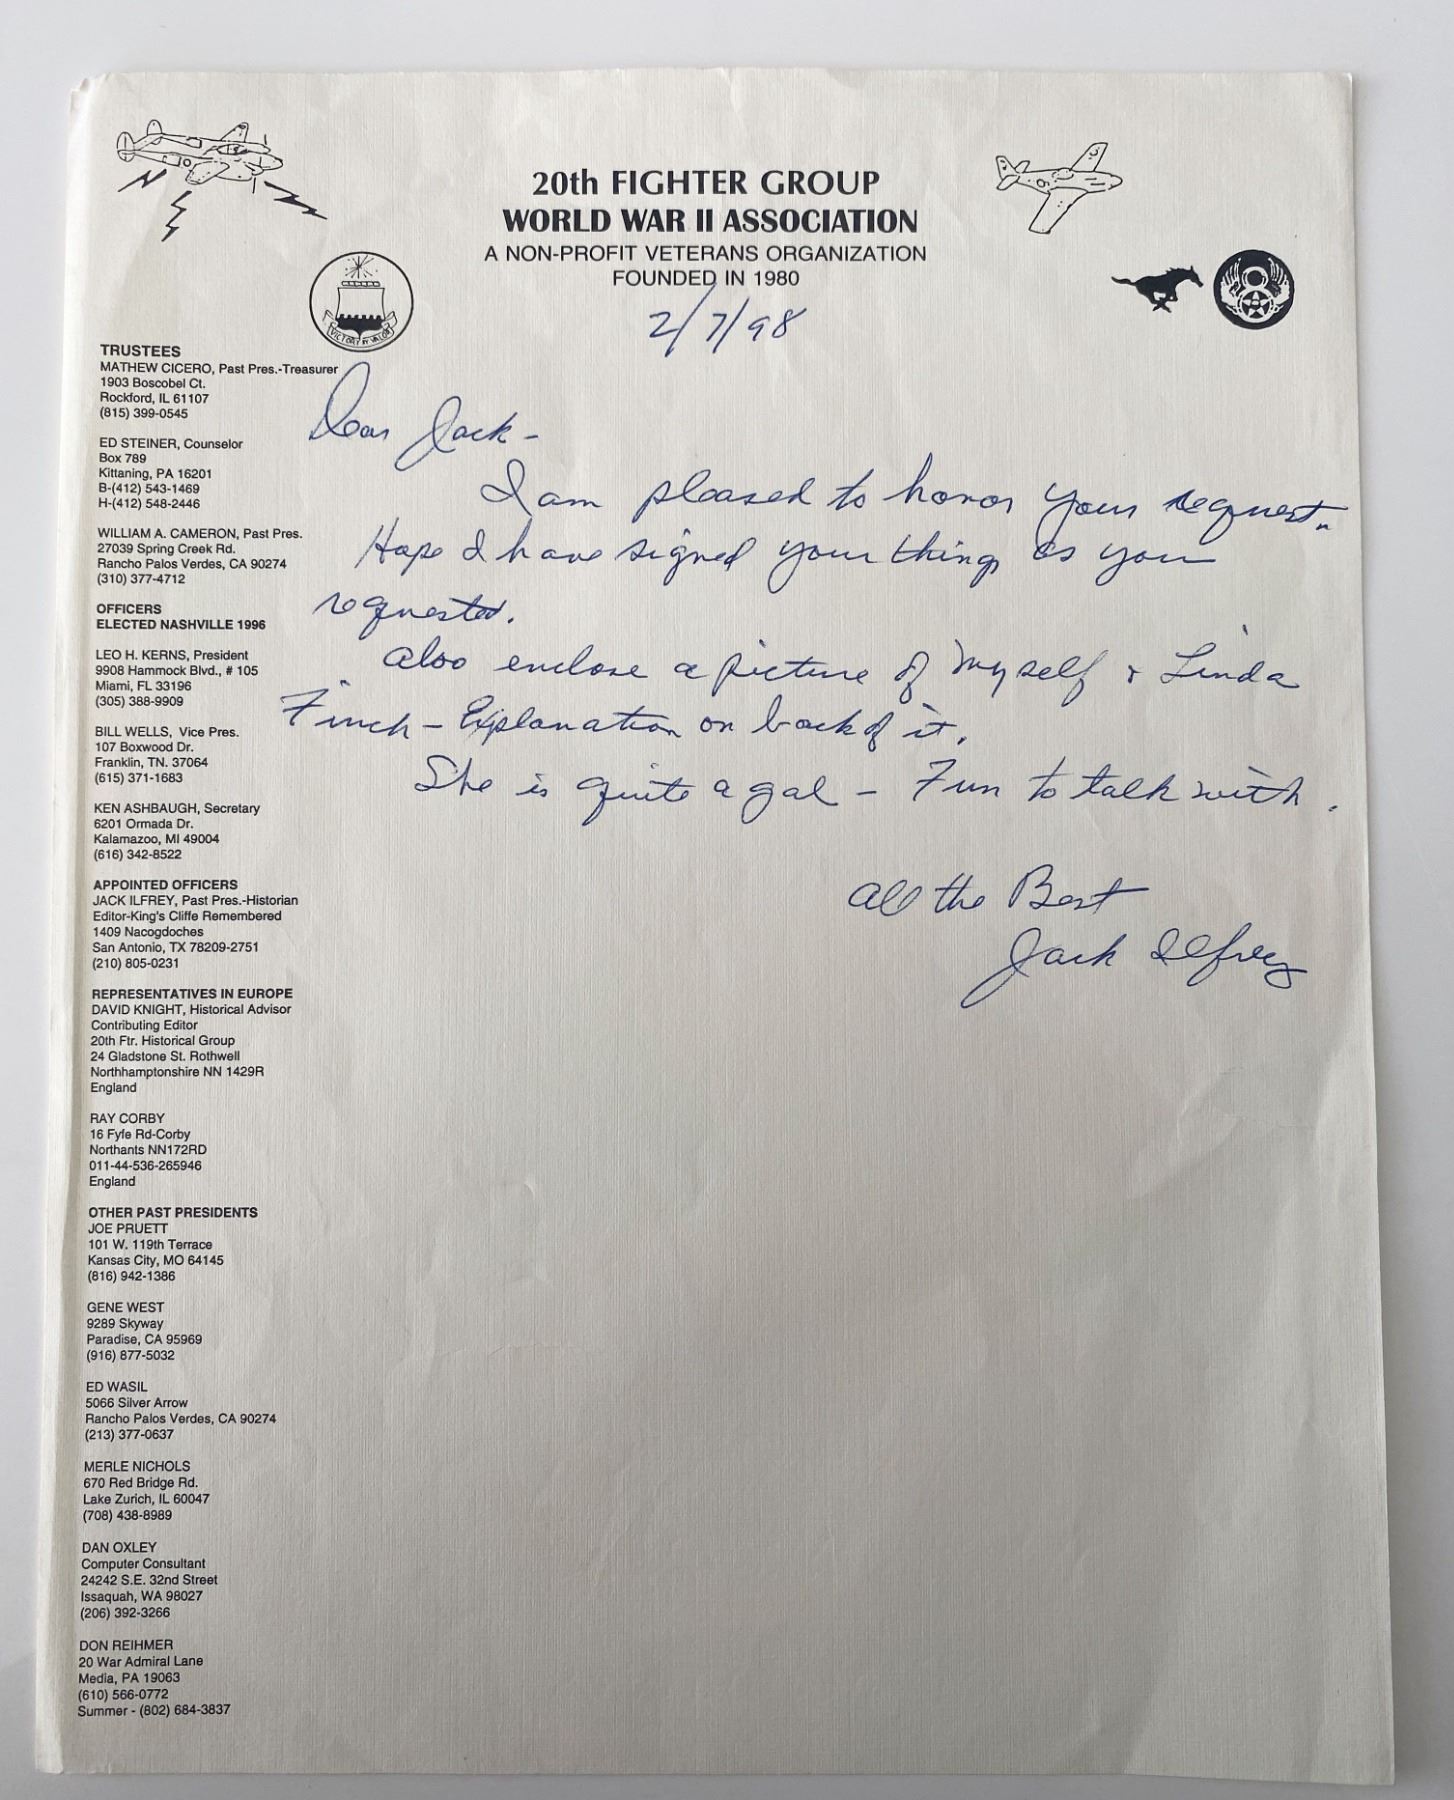 20th FIGHTER GROUP
WORLD WAR II ASSOCIATION
A NON-PROFIT VETERANS ORGANIZATION
FOUNDED IN 1980
VICTORY BY VALOR
2/7/98
Dear Jack -
I am pleased to honor your request.
Hope I have signed your things as you
requested.
Also enclose a picture of myself & Linda
Finch - Explanation on back of it.
She is quite a gal - Fun to talk with.
All the Best
Jack Ilfrey
TRUSTEES
MATHEW CICERO, Past Pres.-Treasurer
1903 Boscobel Ct.
Rockford, IL 61107
(815) 399-0545
ED STEINER, Counselor
Box 789
Kittaning, PA 16201
B-(412) 543-1469
H-(412) 548-2446
WILLIAM A. CAMERON, Past Pres.
27039 Spring Creek Rd.
Rancho Palos Verdes, CA 90274
(310) 377-4712
OFFICERS
ELECTED NASHVILLE 1996
LEO H. KERNS, President
9908 Hammock Blvd., # 105
Miami, FL 33196
(305) 388-9909
BILL WELLS, Vice Pres.
107 Boxwood Dr.
Franklin, TN. 37064
(615) 371-1683
KEN ASHBAUGH, Secretary
6201 Ormada Dr.
Kalamazoo, MI 49004
(616) 342-8522
APPOINTED OFFICERS
JACK ILFREY, Past Pres.-Historian
Editor-King's Cliffe Remembered
1409 Nacogdoches
San Antonio, TX 78209-2751
(210) 805-0231
REPRESENTATIVES IN EUROPE
DAVID KNIGHT, Historical Advisor
Contributing Editor
20th Ftr. Historical Group
24 Gladstone St. Rothwell
Northhamptonshire NN 1429R
England
RAY CORBY
16 Fyfe Rd-Corby
Northants NN172RD
011-44-536-265946
England
OTHER PAST PRESIDENTS
JOE PRUETT
101 W. 119th Terrace
Kansas City, MO 64145
(816) 942-1386
GENE WEST
9289 Skyway
Paradise, CA 95969
(916) 877-5032
ED WASIL
5066 Silver Arrow
Rancho Palos Verdes, CA 90274
(213) 377-0637
MERLE NICHOLS
670 Red Bridge Rd.
Lake Zurich, IL 60047
(708) 438-8989
DAN OXLEY
Computer Consultant
24242 S.E. 32nd Street
Issaquah, WA 98027
(206) 392-3266
DON REIHMER
20 War Admiral Lane
Media, PA 19063
(610) 566-0772
Summer - (802) 684-3837